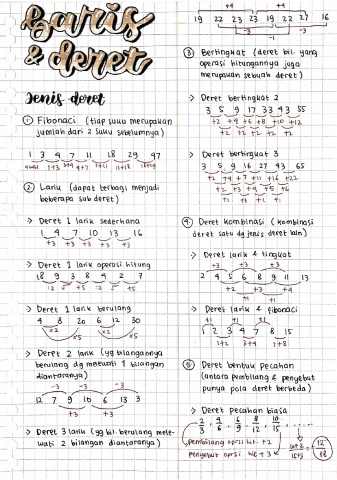 Baris
& deret
Jenis deret
① Fibonaci (tiap suku merupakan
jumlah dari 2 suku sebelumnya)
1 3 4 7 11 18 29 47
1+3 3+4 4+7 7+11 11+18 18+29
② Larik (dapat terbagi menjadi
beberapa sub deret)
> Deret 1 larik sederhana
1 4 7 10 13 16
+3 +3 +3 +3 +3
> Deret 1 larik operasi hitung
18 9 3 8 4 2 7
:2 +5 :2 +5
> Deret 1 larik berulang
4 8 20 6 12 30
x2 x2
x5 x5
> Deret 2 larik (yg bilangannya
berulang dg melewati 1 bilangan
diantaranya)
-3 -3 -3
12 7 9 10 6 13 3
+3 +3
> Deret 3 larik (yg bil. berulang mele-
wati 2 bilangan diantaranya)
+4 +4
19 22 23 23 19 22 27 16
-3 -3
-1
③ Bertingkat (deret bil. yang
operasi hitungannya juga
merupakan sebuah deret)
> Deret bertingkat 2
3 5 9 17 33 43 55
+2 +4 +6 +8 +10 +12
+2 +2 +2 +2 +2
> Deret bertingkat 3
3 5 9 16 27 43 65
+2 +4 +7 +11 +16 +22
+2 +3 +4 +5 +6
+1 +1 +1 +1
④ Deret kombinasi (kombinasi
deret satu dg jenis deret lain)
> Deret larik & tingkat
+3 +3
2 4 5 6 8 9 11 13
+2 +3 +4
+1 +1
> Deret larik & fibonaci
+1 +1
1 2 3 4 7 8 15
1+2 3+4 7+8
⑤ Deret bentuk pecahan
(antara pembilang & penyebut
punya pola deret berbeda)
> Deret pecahan biasa
2/3, 4/6, 6/9, 8/12, 10/15, ......
pembilang oprsi hit. +2
penyebut oprsi hit +3
10+2/15+3 = 12/18